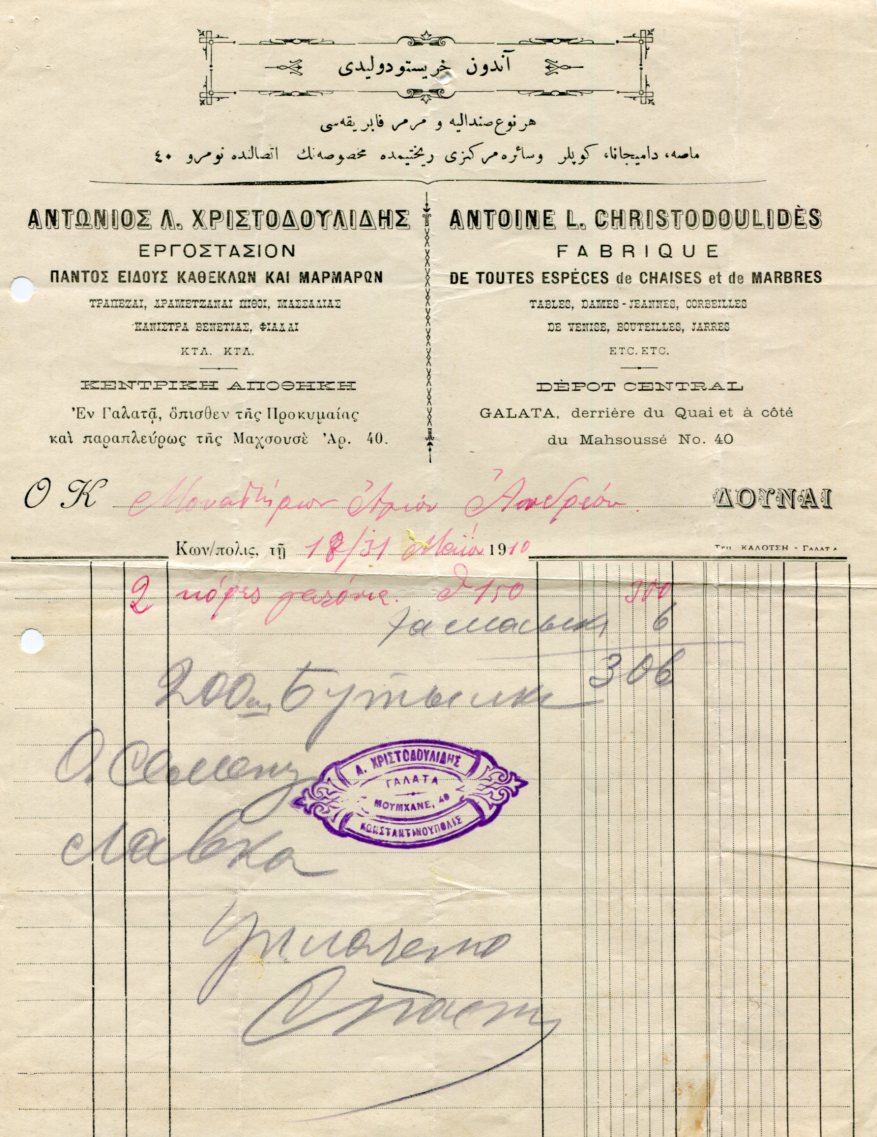 آندون خريستودوليدى
هر نوع صنداليه و مرمر فابريقه‌سى
ماصه، داميجانا، كوپلر وسائره مركزى ريختيمده مخصوصه‌نك اتصالنده نومرو ٤٠
ΑΝΤΩΝΙΟΣ Λ. ΧΡΙΣΤΟΔΟΥΛΙΔΗΣ
ΕΡΓΟΣΤΑΣΙΟΝ
ΠΑΝΤΟΣ ΕΙΔΟΥΣ ΚΑΘΕΚΛΩΝ ΚΑΙ ΜΑΡΜΑΡΩΝ
ΤΡΑΠΕΖΑΙ, ΔΡΑΜΕΤΖΑΝΑΙ ΠΙΘΟΙ, ΜΑΣΣΑΛΙΑΣ
ΚΑΝΙΣΤΡΑ ΒΕΝΕΤΙΑΣ, ΦΙΑΛΑΙ
ΚΤΛ. ΚΤΛ.
ΚΕΝΤΡΙΚΗ ΑΠΟΘΗΚΗ
Ἐν Γαλατᾷ, ὄπισθεν τῆς Προκυμαίας
καὶ παραπλεύρως τῆς Μαχσουσὲ Ἀρ. 40.
ANTOINE L. CHRISTODOULIDÈS
FABRIQUE
DE TOUTES ESPÈCES de CHAISES et de MARBRES
TABLES, DAMES-JEANNES, CORBEILLES
DE VENISE, BOUTEILLES, JARRES
ETC. ETC.
DÈPOT CENTRAL
GALATA, derrière du Quai et à côté
du Mahsoussé No. 40
Ο Κ Μοναστήριον Ἁγίου Ἀνδρέου ΔΟΥΝΑΙ
Κων/πολις, τῇ 18/31 Μαΐου 1910
Τυπ. ΚΑΛΟΤΣΗ - ΓΑΛΑΤΑ
2 150 300
6
306
200
лавка
Λ. ΧΡΙΣΤΟΔΟΥΛΙΔΗΣ
ΓΑΛΑΤΑ
ΜΟΥΜΧΑΝΕ, 40
ΚΩΝΣΤΑΝΤΙΝΟΥΠΟΛΙΣ